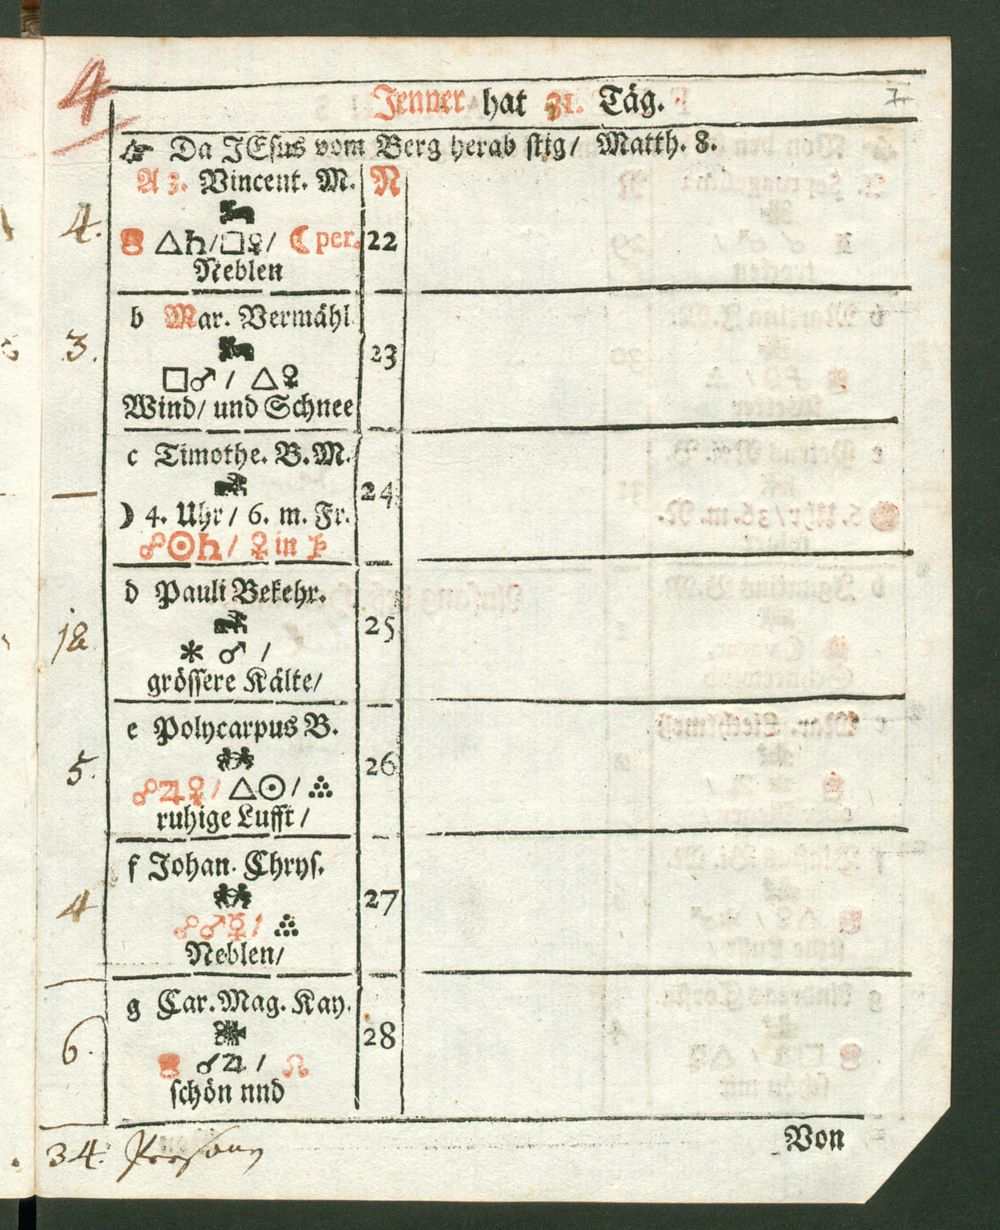 4
Jenner hat 31. Täg.
☞ Da JEsus vom Berg herab stig/ Matth. 8.
A 3. Vincent. M. N
4. △♄/□♀/ ☾ per. 22
Neblen
b Mar. Vermähl
3. 23
□♂ / △♀
Wind/ und Schnee
c Timothe. B. M.
— 24
☽ 4. Uhr/ 6. m. Fr.
☍☉♄/ ♀ in
d Pauli Bekehr.
12 25
✱ ♂ /
grössere Kälte/
e Polycarpus B.
5. 26
☍♃♀/ △☉/ ஃ
ruhige Lufft/
f Johan. Chrys.
4 27
☍♂☿/ ஃ
Neblen/
g Car. Mag. Kay.
6. 28
☌♃ / ☊
schön nnd
Von
34. Persohn